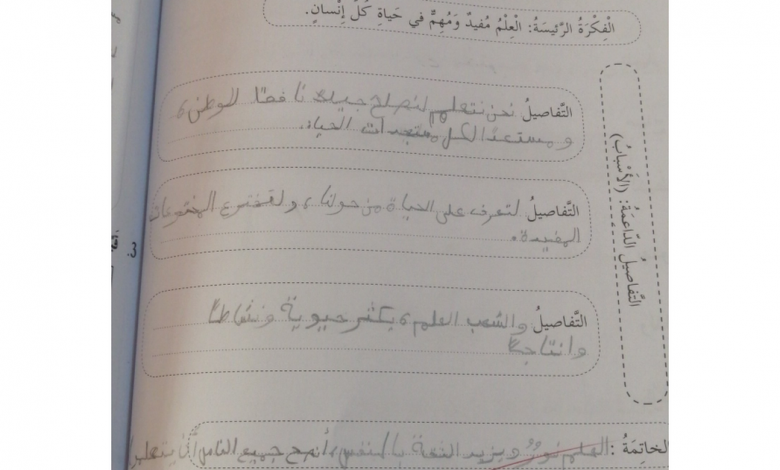 الْفِكْرَةُ الرَّئِيسَةُ: الْعِلْمُ مُفيدٌ وَمُهِمٌّ في حَياةِ كُلِّ إِنْسانٍ.
التَّفاصيلُ الدّاعِمَةُ: (الْأَسْبابُ)
التَّفاصيلُ نحن نتعلم لنصلح جيلا نافعًا للوطن،
و مستعدًا لكل مستجدات الحياة.
التَّفاصيلُ لتعرف على الحياة من حولنا، و لنخترع المخترعات
المفيدة.
التَّفاصيلُ والشعب العلم، يكثر حيوية و نشاطًا
وانتاجًا
الخاتِمَةُ: العلم نورٌ ويزيد الثقة بالنفس، أنصح جميع الناس أن يتعلموا